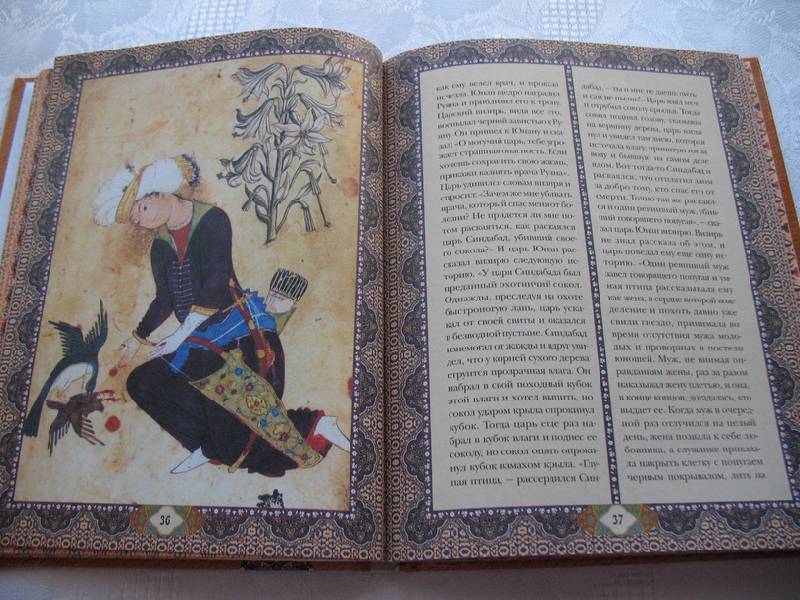 36
как ему велел врач, и проказа
исчезла. Юнан щедро наградил
Руяна и приблизил его к трону.
Царский визирь, видя все это,
воспылал черной завистью к Ру-
яну. Он пришел к Юнану и ска-
зал: «О могучий царь, тебе угро-
жает страшная опасность. Если
хочешь сохранить свою жизнь,
прикажи казнить врача Руяна».
Царь удивился словам визиря и
спросил: «Зачем же мне убивать
врача, который спас меня от бо-
лезни? Не придется ли мне по-
том раскаяться, как раскаялся
царь Синдабад, убивший свое-
го сокола?» И царь Юнан рас-
сказал визирю следующую ис-
торию. «У царя Синдабада был
преданный охотничий сокол.
Однажды, преследуя на охоте
быстроногую лань, царь уска-
кал от своей свиты и оказался
в безводной пустыне. Синдабад
изнемогал от жажды и вдруг уви-
дел, что у корней сухого дерева
струится прозрачная влага. Он
набрал в свой походный кубок
этой влаги и хотел выпить, но
сокол ударом крыла опрокинул
кубок. Тогда царь еще раз на-
брал в кубок влаги и поднес ее
соколу, но сокол опять опроки-
нул кубок взмахом крыла. «Глу-
пая птица, — рассердился Син-
дабад, — ты и мне не даешь пить
и сам не пьешь!» Царь взял меч
и отрубил соколу крылья. Тогда
сокол поднял голову, указывая
на вершину дерева, царь взгля-
нул и увидел там змею, которая
источала влагу, принятую им за
воду и бывшую на самом деле
ядом. Вот тогда-то Синдабад и
раскаялся, что отплатил злом
за добро тому, кто спас его от
смерти. Точно так же раскаял-
ся и один ревнивый муж, убив-
ший говорящего попугая», — ска-
зал царь Юнан визирю. Визирь
не знал рассказа об этом, и
царь поведал ему еще одну ис-
торию. «Один ревнивый муж
завел говорящего попугая и ум-
ная птица рассказывала ему
как жена, в сердце которой вож-
деление и похоть давно уже
свили гнездо, принимала во
время отсутствия мужа моло-
дых и проворных в постели
юношей. Муж, не внимая оп-
равданиям жены, раз за разом
наказывал жену плетью, и она,
в конце концов, догадалась, кто
выдает ее. Когда муж в очеред-
ной раз отлучился на целый
день, жена позвала к себе лю-
бовника, а служанке приказа-
ла накрыть клетку с попугаем
черным покрывалом, лить на
37